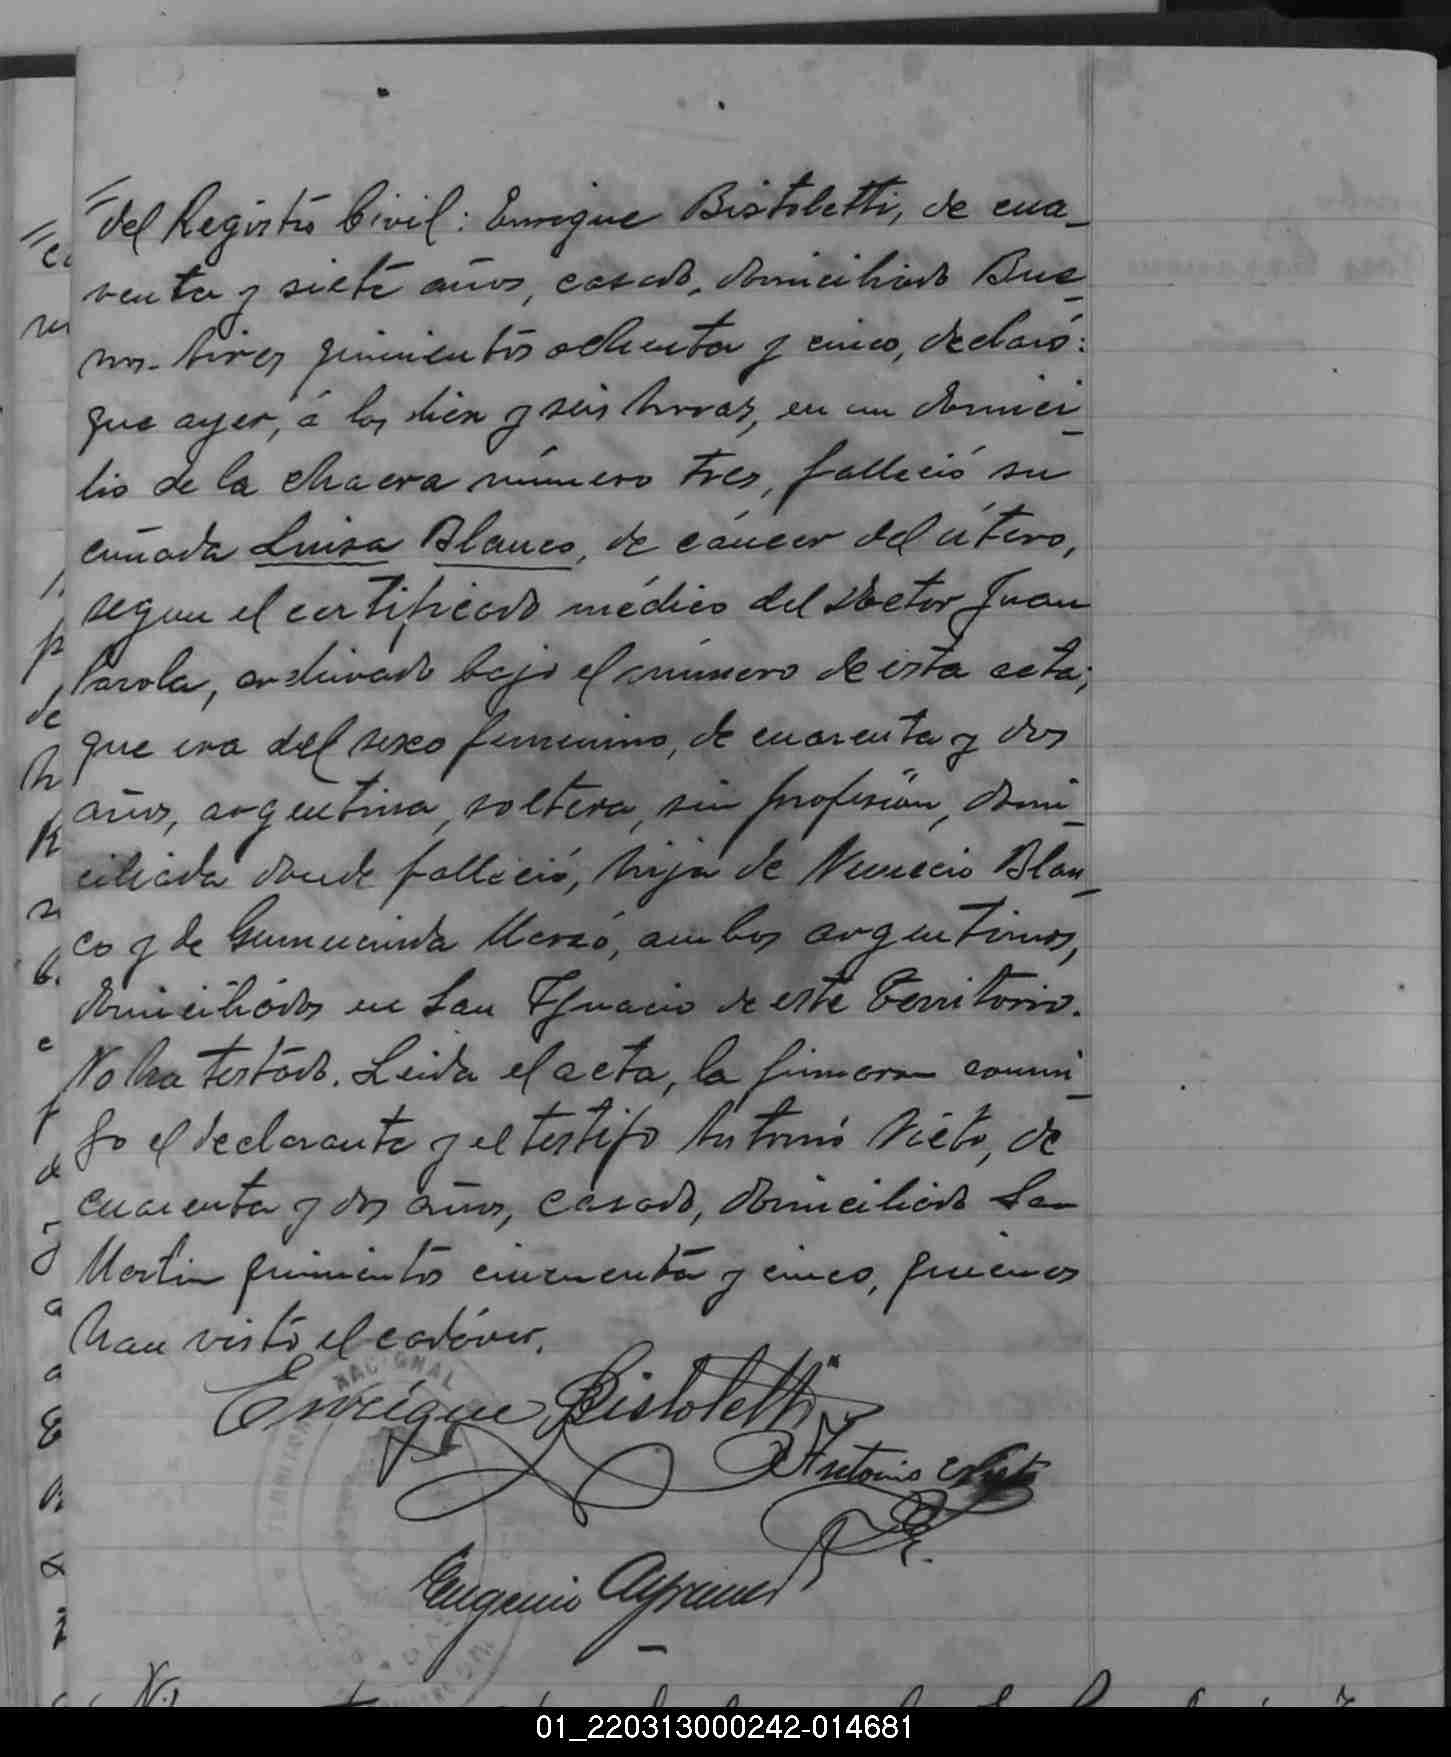 del Registro Civil: Enrique Bistoletti, de cua-
renta y siete años, casado, domiciliado Bue-
nos Aires quinientos ochenta y cinco, declaró:
que ayer, á las diez y seis horas, en un domici-
lio de la chacra número tres, falleció su
cuñada Luisa Blanco, de cáncer del útero,
segun el certificado médico del Doctor Juan
archivado bajo el número de esta acta;
que era del sexo femenino, de cuarenta y dos
años, argentina, soltera, sin profesión, domi-
ciliada donde falleció, hija de Blan-
co y de ambos argentinos,
domiciliados en San Ignacio de este Territorio.
No ha testado. Leida el acta, la firmaron conmi-
go el declarante y el testigo Antonio Nieto, de
cuarenta y dos años, casado, domiciliado San
Martin quinientos cincuenta y cinco, quienes
han visto el cadáver.
Enrique Bistoletti
Antonio Nieto
Eugenio
NACIONAL
01_220313000242-014681